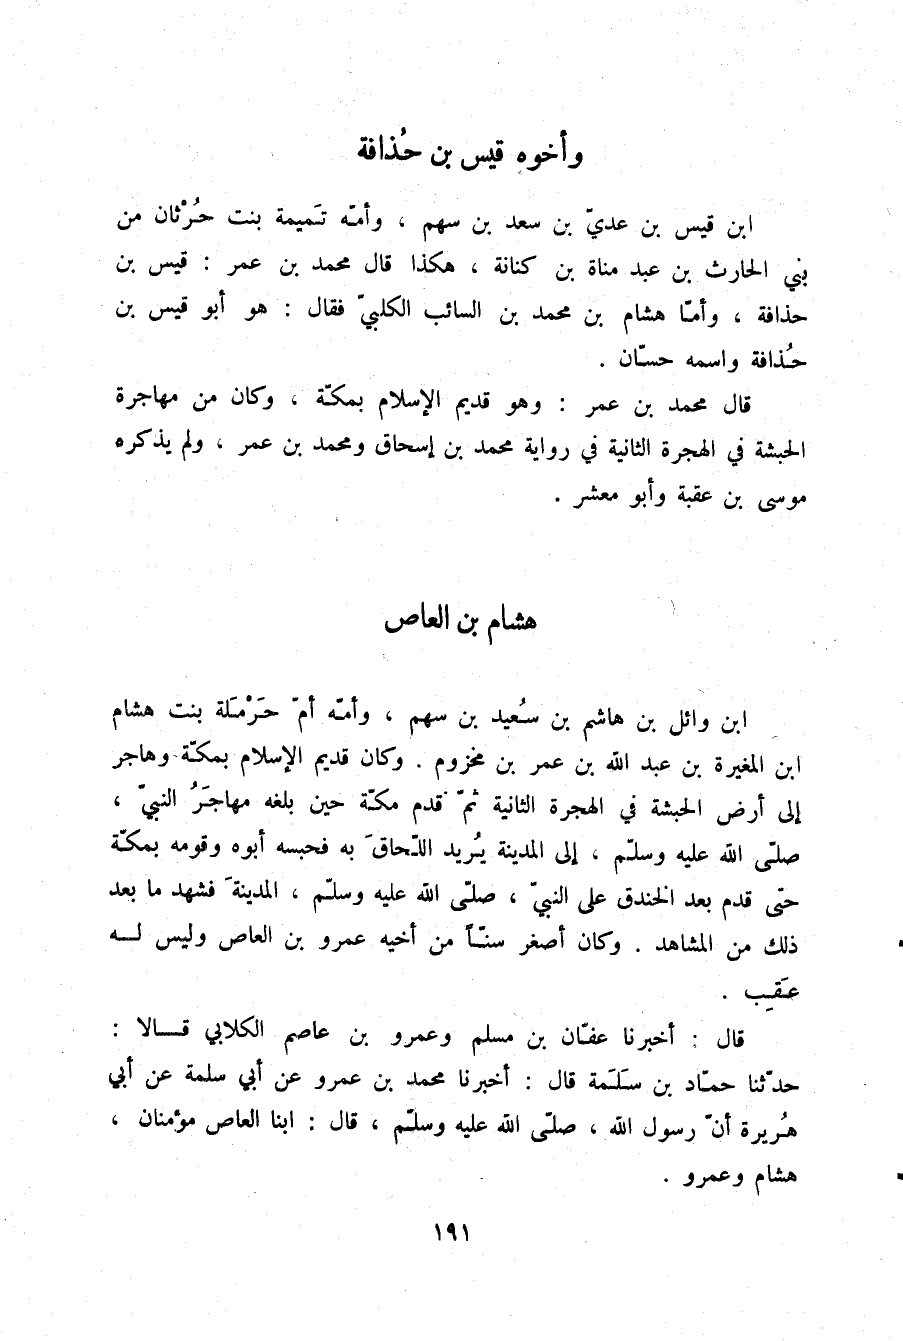 وأخوه قيس بن حُذافة
ابن قيس بن عديّ بن سعد بن سهم ، وأمّه تَميمة بنت حُرْثان من
بني الحارث بن عبد مناة بن كنانة ، هكذا قال محمد بن عمر : قيس بن
حذافة ، وأمّا هشام بن محمد بن السائب الكلبيّ فقال : هو أبو قيس بن
حُذافة واسمه حسّان .
قال محمد بن عمر : وهو قديم الإسلام بمكّة ، وكان من مهاجرة
الحبشة في الهجرة الثانية في رواية محمد بن إسحاق ومحمد بن عمر ، ولم يذكره
موسى بن عقبة وأبو معشر .
هشام بن العاص
ابن وائل بن هاشم بن سُعيد بن سهم ، وأمّه أمّ حَرْمَلة بنت هشام
ابن المغيرة بن عبد الله بن عمر بن مخزوم . وكان قديم الإسلام بمكّة وهاجر
إلى أرض الحبشة في الهجرة الثانية ثمّ قدم مكّة حين بلغه مهاجَرُ النبيّ ،
صلّى الله عليه وسلّم ، إلى المدينة يُريد اللّحاقَ به فحبسه أبوه وقومه بمكّة
حتّى قدم بعد الخندق على النبيّ ، صلّى الله عليه وسلّم ، المدينةَ فشهد ما بعد
ذلك من المشاهد . وكان أصغر سنّاً من أخيه عمرو بن العاص وليس لـه
عَقِب .
قال : أخبرنا عفّان بن مسلم وعمرو بن عاصم الكلابي قـالا :
حدّثنا حمّاد بن سَلَمة قال : أخبرنا محمد بن عمرو عن أبي سلمة عن أبي
هُريرة أنّ رسول الله ، صلّى الله عليه وسلّم ، قال : ابنا العاص مؤمنان ،
هشام وعمرو .
١٩١